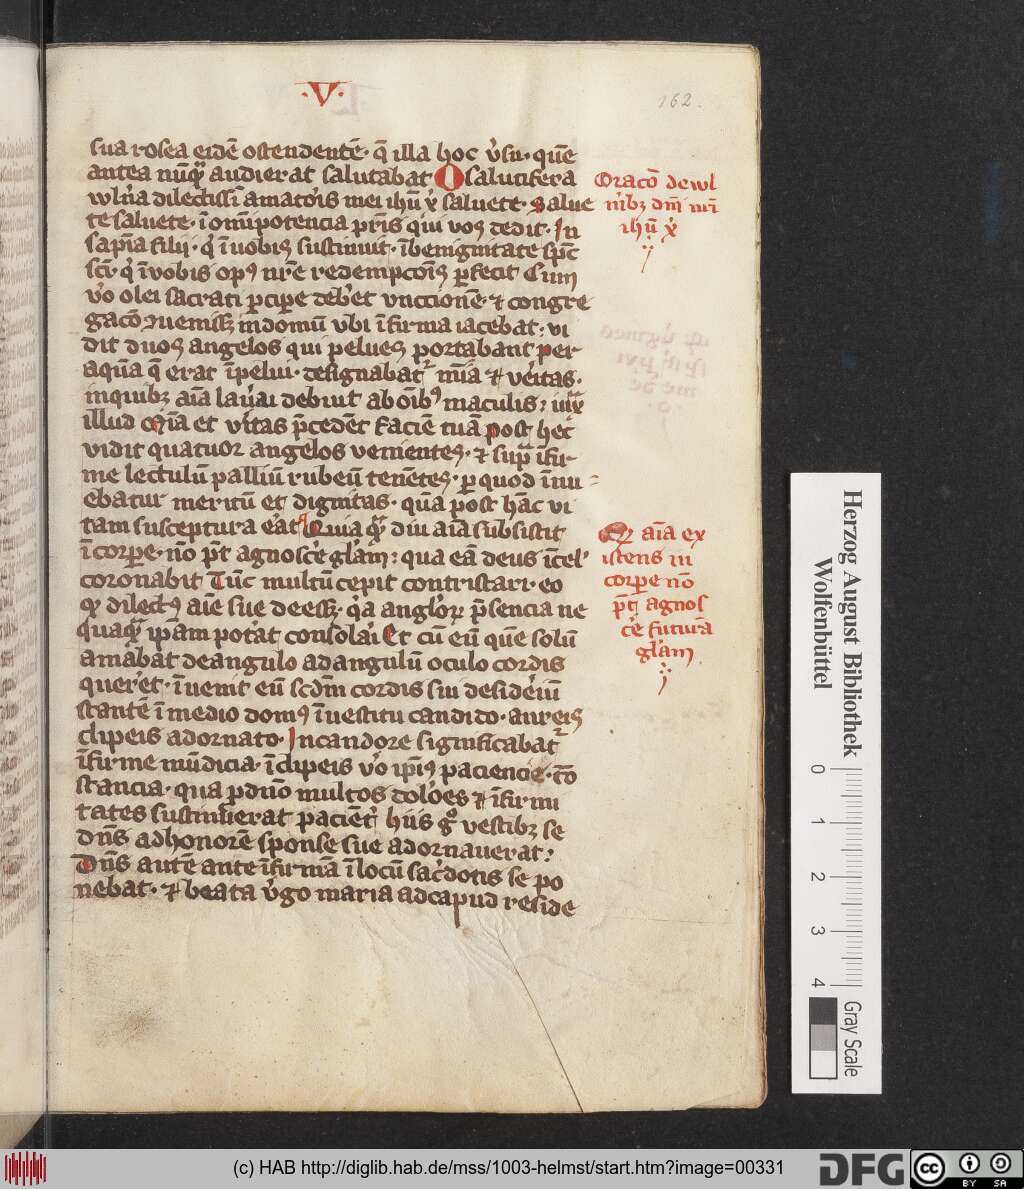 ·V·
162.
sua rosea eidē ostendente· q̄ illa hoc v̓su· quē
antea nūqͣ audierat salutabat O salutifera
wln̓a dilectissī amatoīs mei ihū xp̄ saluete· Salue
te saluete· ī om̄ipotencia pr̄is qui vos dedit· In
sapīa filij· q̓ ī uobis sustinuit· ī benignitate sp̄c
sc̄i· q̓ ī vobis opꝰ nr̄e redempcōis ꝑfecit Cum
v̓o olei sacrati ꝑcipe deb̓et vnccionē· ⁊ congre
gacō ꝯuenisꝫ in domū vbi īfirma iacebat· vi
dit duos angelos qui pelues portabant per
aquā q̄ erat ī pelui· designabatᷣ mīa ⁊ veritas·
in quibꝫ aīa lauari debuit ab oībꝰ maculis· iuxͣ
illud mīa et v̓itas p̄cedēt faciē tuā post hec
vidit quatuor angelos venientes· ⁊ supͣ īfir
me lectulū palliū rubeū tenētes· ꝑ quod īnu
ebatur meritū et dignitas· quā post hāc vi
tam susceptura erat Quia qͣ diu aīa subsistit
ī corpe· nō p̄t agnosc̓e gl̓am· qua eā deus ī cel̓
coronabit Tūc multū cepit contristari· eo
qꝫ dilectꝰ aīe sue deessꝫ· qͣ angl̓oꝝ p̄sencia ne
quaqͣ ip̄am pot̓at consolai Et cū eū quē solū
amabat de angulo ad angulū oculo cordis
quer̓et· īuenit eū scd̄m cordis sui desideriū
stantē ī medio domꝰ ī uestitu candido· aureis
clipeis adornato· In candore significabatᷣ
īfirme mūdicia· ī clipeis v̓o ip̄iꝰ paciencie· cō
stancia· qua ꝑ diuō multos dolōes ⁊ īfirmi
tates sustinuerat pacient̓ hiis gͦ vestibꝫ se
dn̄s ad honorē sponse sue adornauerat·
Dn̄s autē ante īfirmā ī locū sac̓dotis se po
nebat· ⁊ beata v̓go maria ad capud reside
Oracō de wl
n̓ibꝫ dn̄i nr̄i
ihū xp̄
Qͣ aīa ex
istens in
corpe nō
p̄t agnos
c̓e futurā
gl̓am
Herzog August Bibliothek
Wolfenbüttel
0 1 2 3 4
Gray Scale
(c) HAB http://diglib.hab.de/mss/1003-helmst/start.htm?image=00331
DFG
cc BY SA